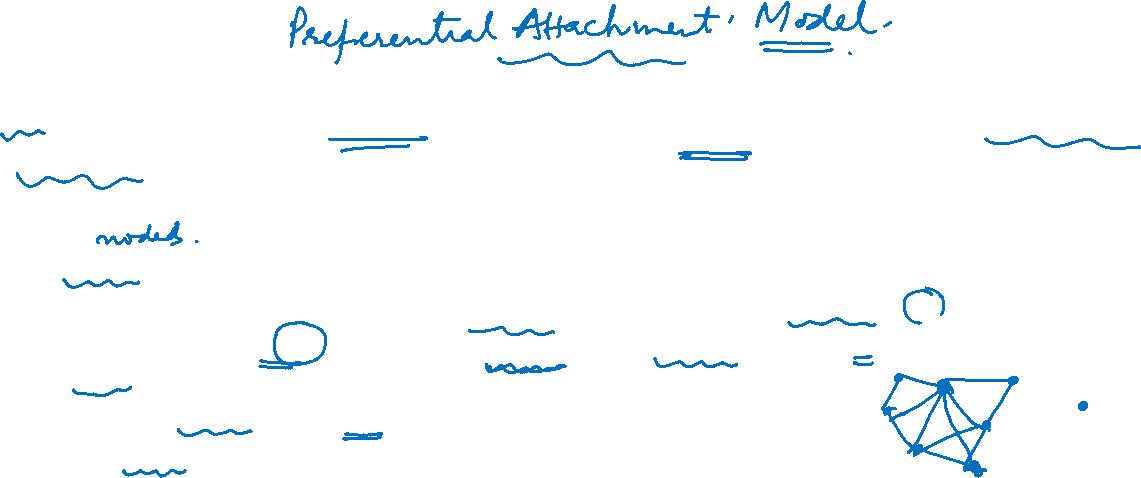 Preferential Attachment Model.
nodes.